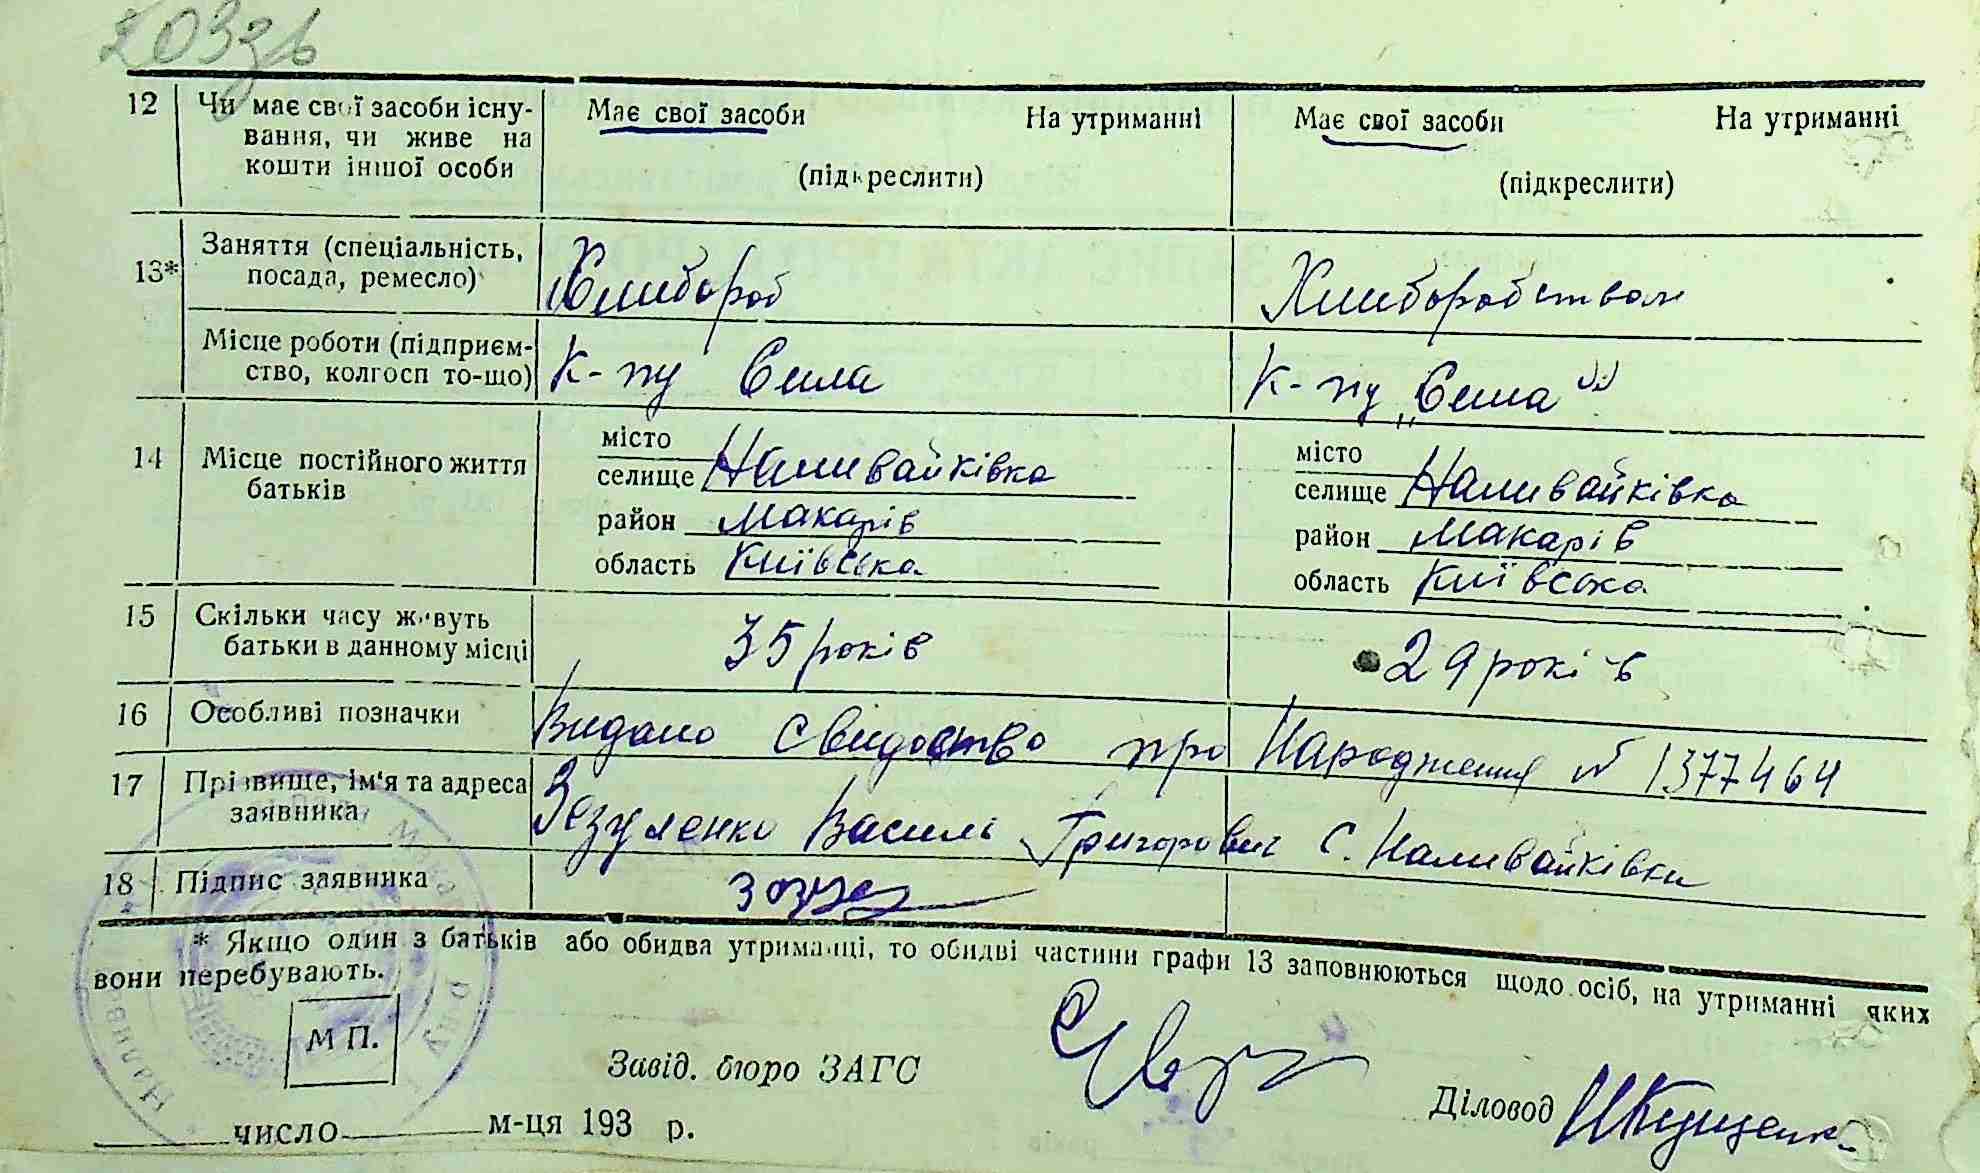 203зв
12 Чи має свої засоби існу- Має свої засоби На утриманні Має свої засоби На утриманні
вання, чи живе на
кошти іншої особи (підкреслити) (підкреслити)
13* Заняття (спеціальність,
посада, ремесло) Хлибороб Хлиборобством
Місце роботи (підприєм-
ство, колгосп то-що) К-пу Сила К-пу „Сила"
14 Місце постійного життя
батьків
місто місто
селище Наливайківка селище Наливайківка
район Макарів район Макарів
область Київська область Київська
15 Скільки часу живуть
батьки в данному місці 35 років 29 років
16 Особливі позначки Видано Свидоство про Народження № 1377464
17 Прізвище, ім'я та адреса
заявника Зозуленко Василь Григорович С. Наливайківки
18 Підпис заявника Зозул
* Якщо один з батьків або обидва утриманці, то обидві частини графи 13 заповнюються щодо осіб, на утриманні яких
вони перебувають.
М П.
Завід. бюро ЗАГС
Діловод
число м-ця 193 р.